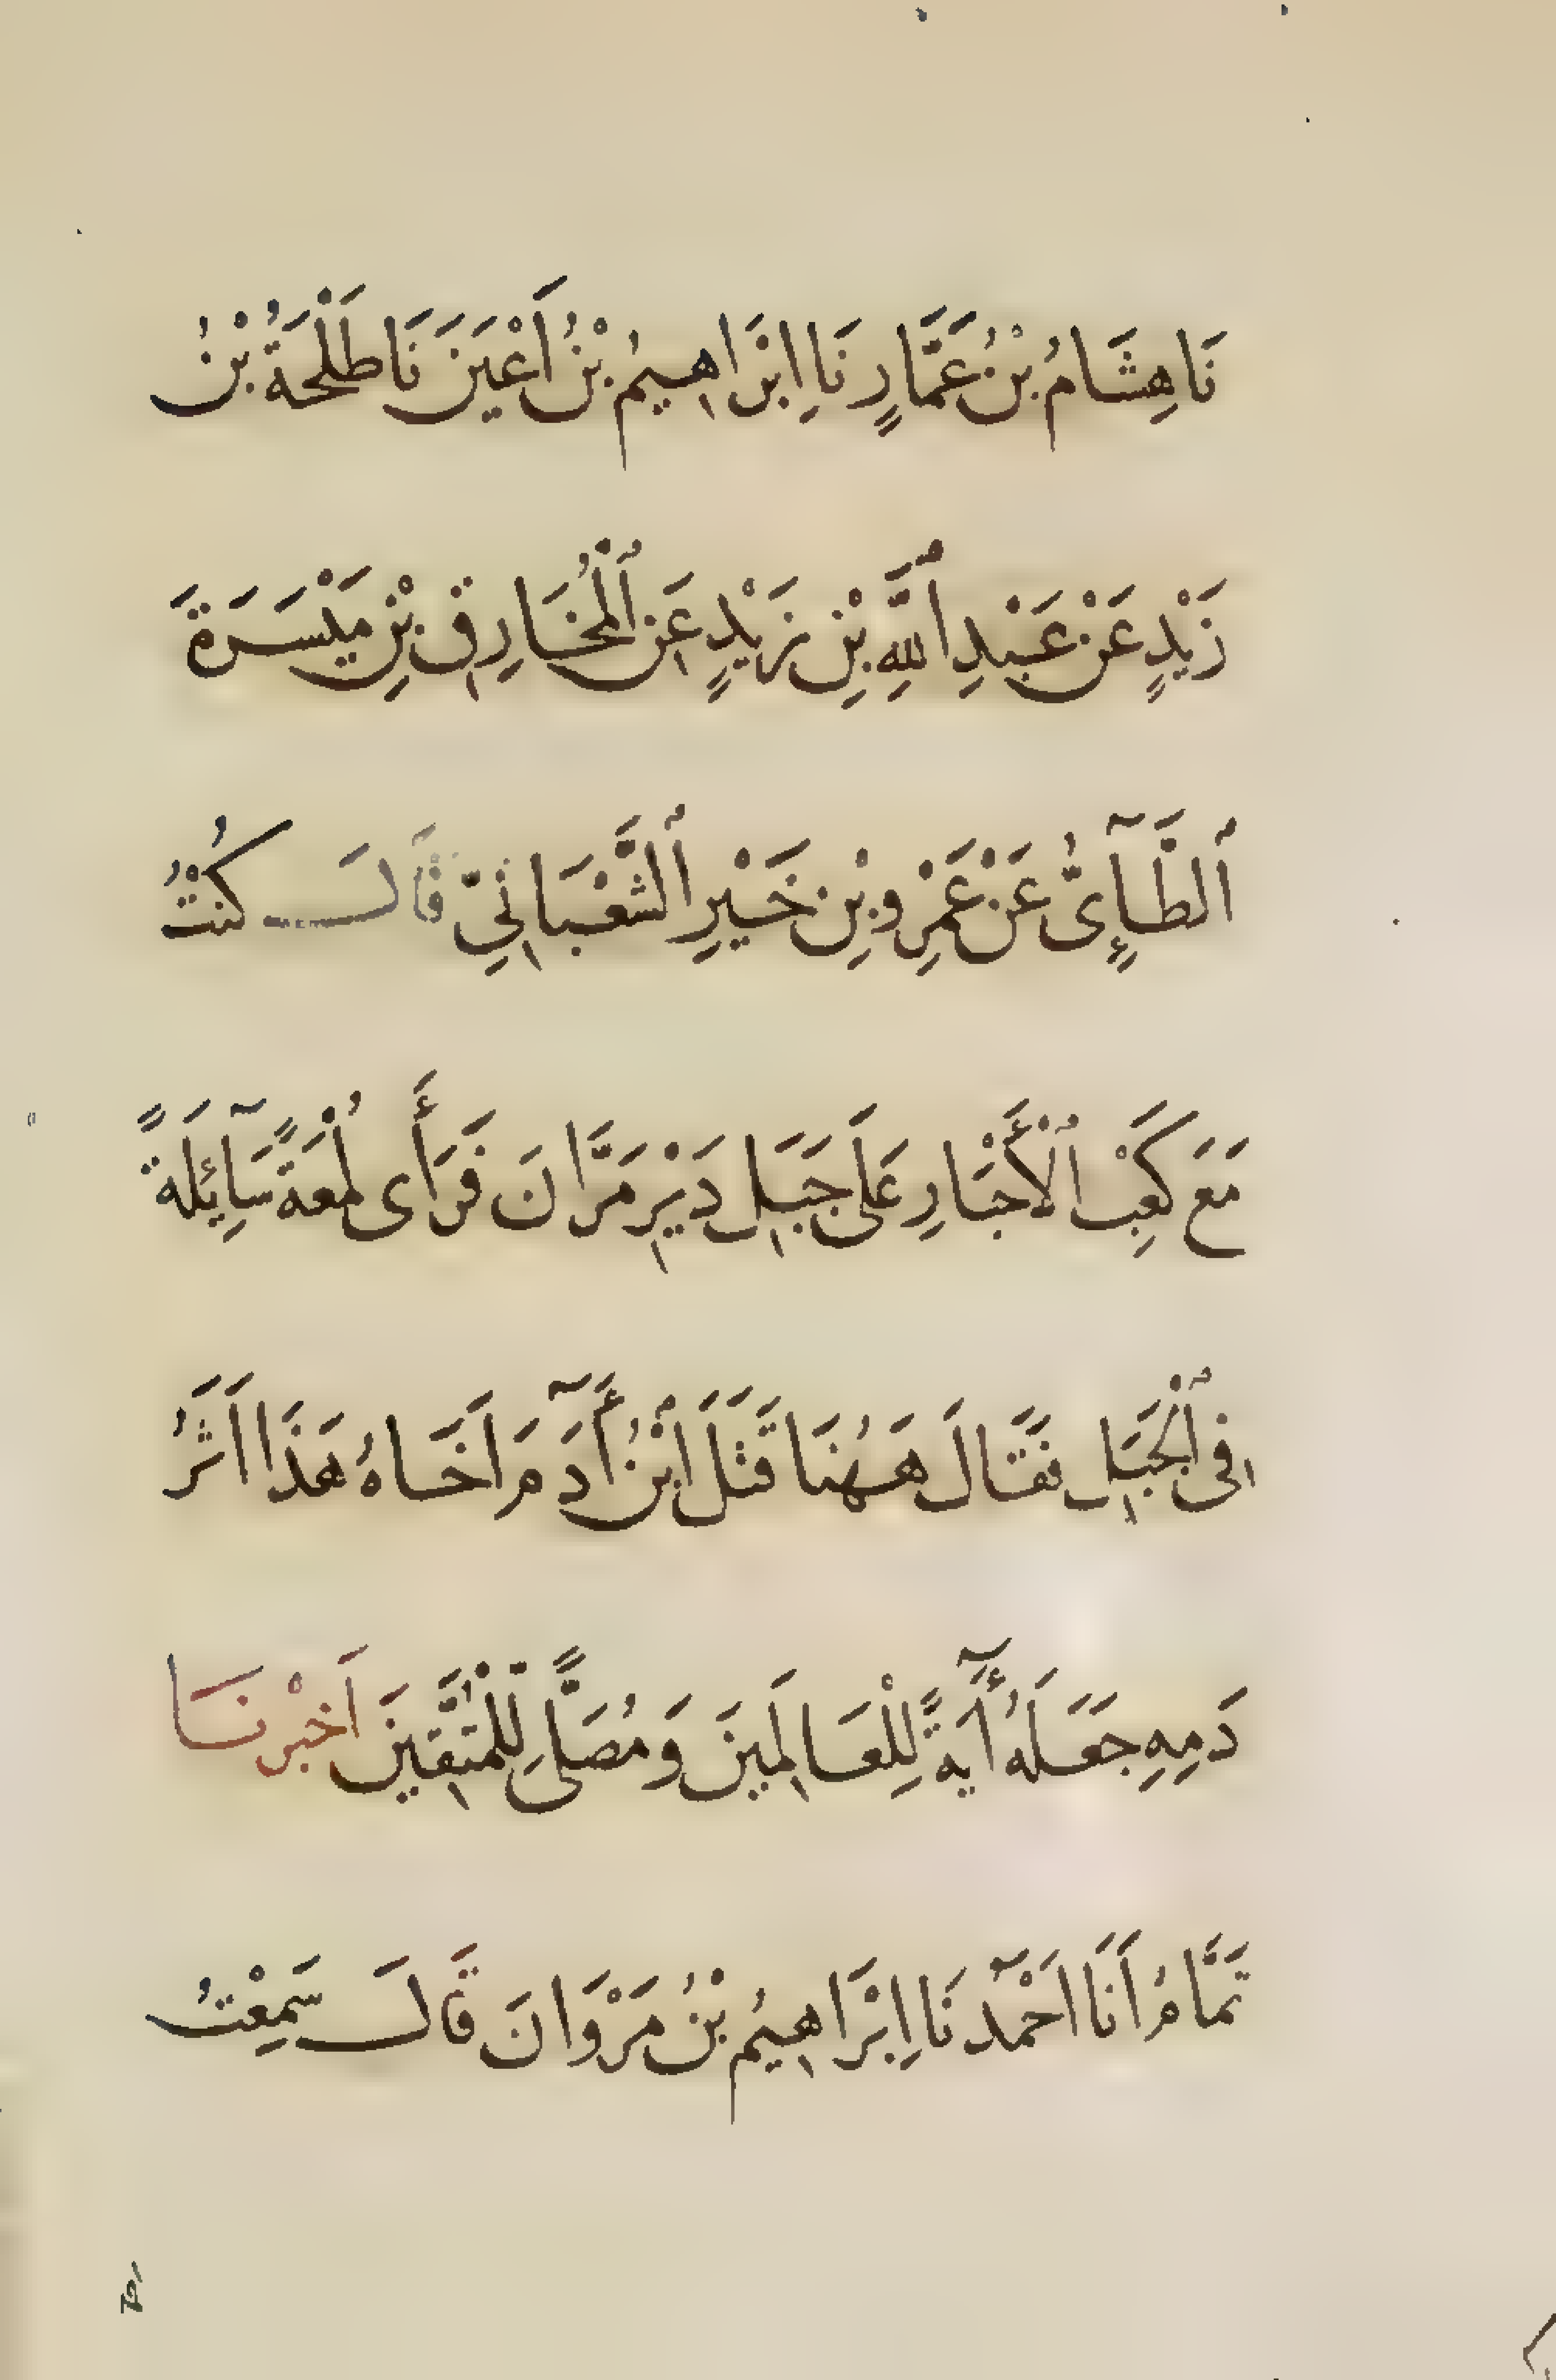 نَا هِشَامُ بْنُ عَمَّارٍ نَا اِبْرَاهِيمُ بْنُ اَعْيَنَ نَا طَلْحَةُ بْنُ
زَيْدٍ عَنْ عَبْدِ ٱللَّهِ بْنِ زَيْدٍ عَنِ ٱلْمُخَارِقِ بْنِ مَيْسَرَةَ
ٱلطَّآئِيِّ عَنْ عَمْرِو بْنِ خَيْرِ ٱلشَّعْبَانِيِّ قَالَ كُنْتُ
مَعَ كَعْبِ ٱلْأَحْبَارِ عَلَى جَبَلِ دَيْرِ مَرَّانَ فَرَأَى لُمْعَةً سَآئِلَةً
فِي ٱلْجَبَلِ فَقَالَ هَهُنَا قَتَلَ ٱبْنُ أٓدَمَ اَخَاهُ هَذَا اَثَرُ
دَمِهِ جَعَلَهُ أٓيَةً لِلْعَالَمِينَ وَمُصَلًّى لِلْمُتَّقِينَ اَخْبَرَنَا
تَمَّامُ اَنَا اَحْمَدُ نَا اِبْرَاهِيمُ بْنُ مَرْوَانَ قَالَ سَمِعْتُ